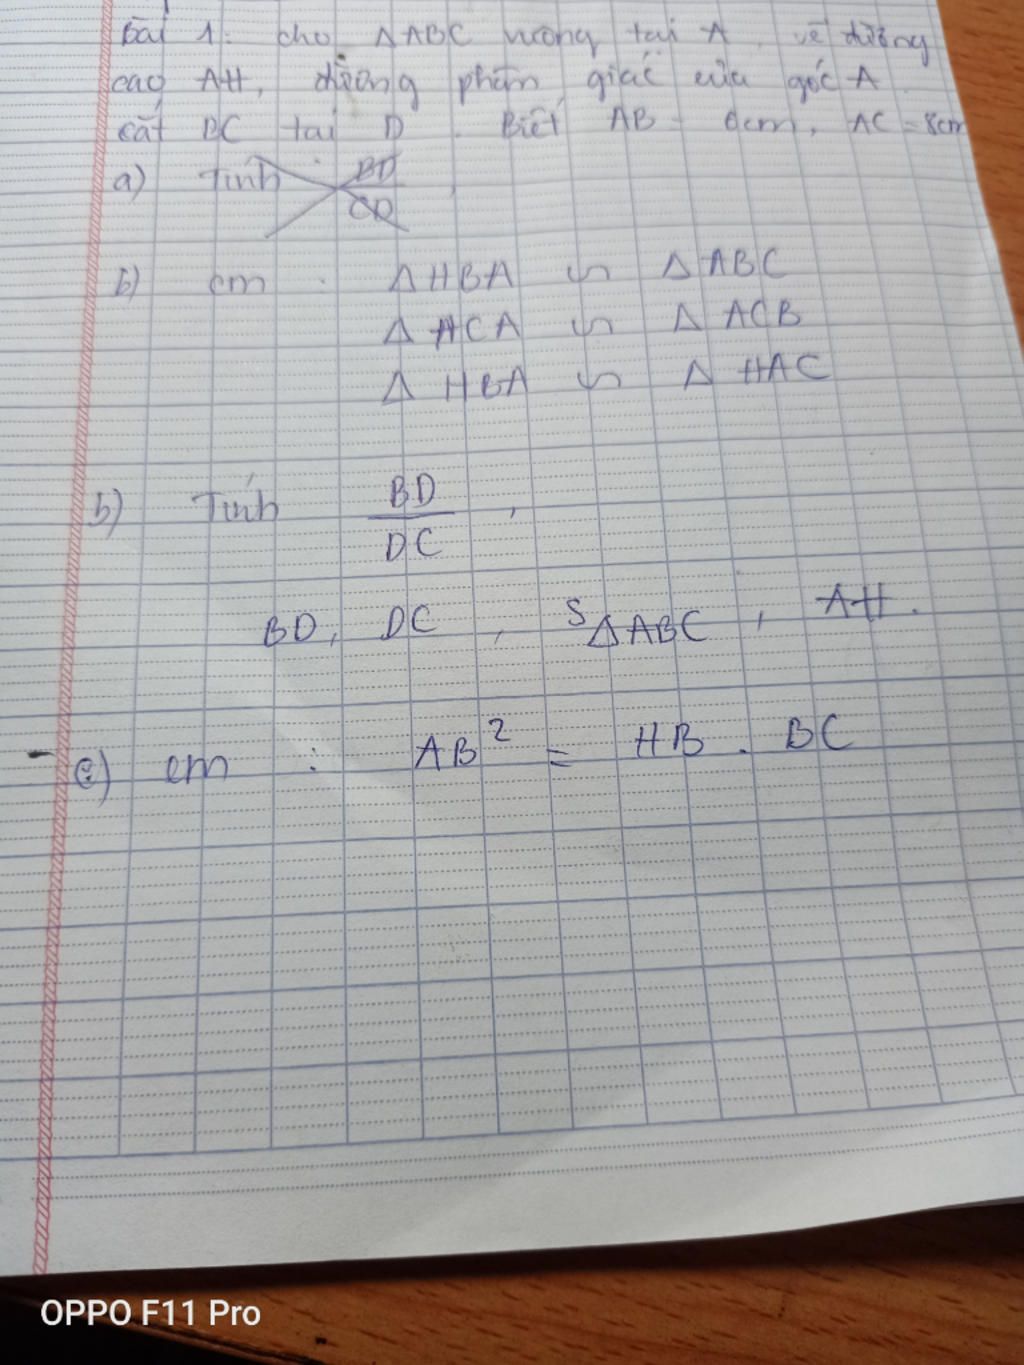 Bài 1: cho ΔABC vuông tại A, vẽ đường
cao AH, đường phân giác của góc A
cắt BC tại D. Biết AB = 6cm, AC = 8cm
a) Tính BD/CD,
b) cm : ΔHBA ∽ ΔABC
Δ HCA ∽ Δ ACB
Δ HBA ∽ Δ HAC
b) Tính BD/DC,
BD, DC, SΔABC, AH.
c) cm : AB² = HB . BC
OPPO F11 Pro